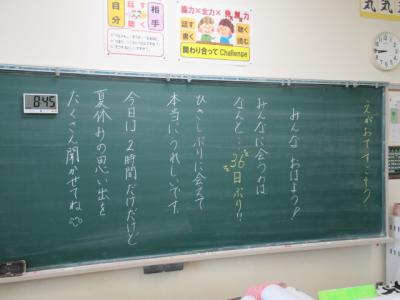 えがおですごそう
みんな おはよう!
みんなに会うのは
なんと…36日ぶり!!
ひさしぶりに会えて
本当にうれしいです。
今日は2時間だけだけど
夏休みの思い出を
たくさん聞かせてね
8:45
自分
話す
聴く
相手
協力×全力×
話す
書く
聴く
読む
関わり合ってChallenge